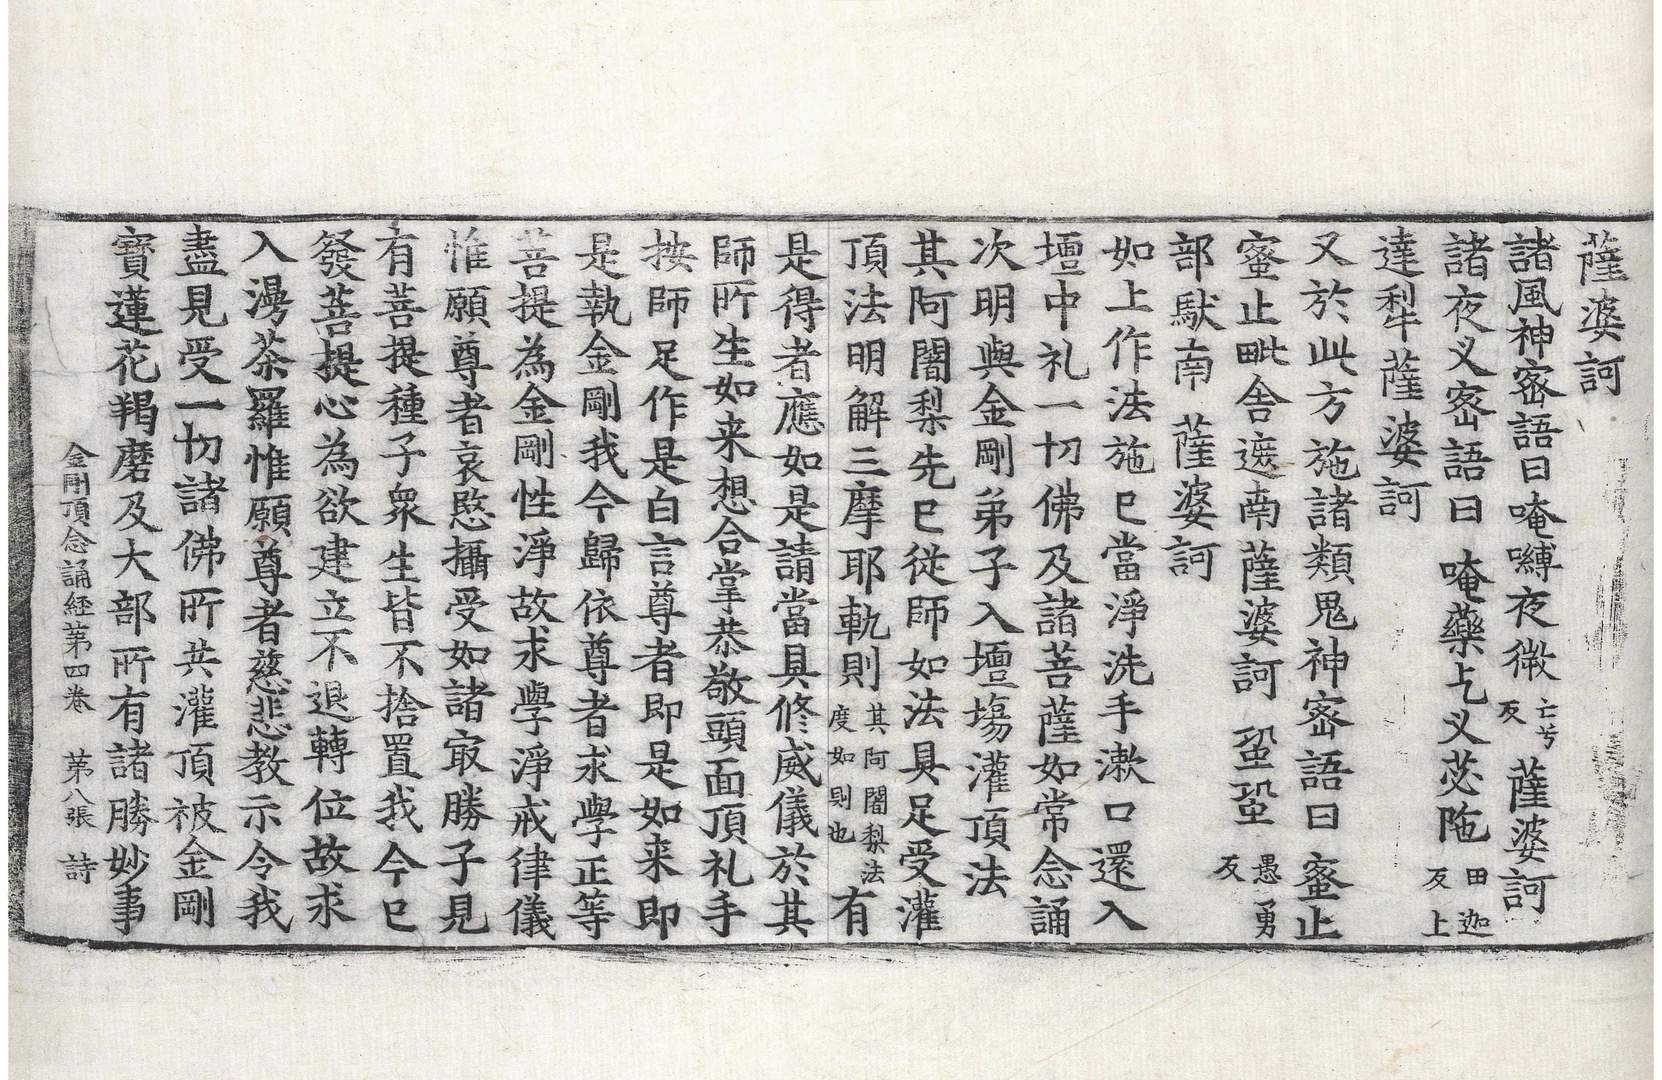 薩婆訶
諸風神宻語曰唵嚩夜微亡兮反薩婆訶
諸夜义宻語曰 唵藥乞义苾陁田迦反上
達犁薩婆訶
又於此方施諸類鬼神宻語曰 蜜止
蜜止毗舍遮南薩婆訶 蛩蛩愚勇反
部馱南 薩婆訶
如上作法施已當淨洗手漱口還入
壇中礼一切佛及諸菩薩如常念誦
次明與金剛弟子入壇塲灌頂法
其阿闍梨先已從師如法具足受灌
頂法明解三摩耶軌則其阿闍梨法度如則也有
是得者應如是請當具脩威儀於其
師所生如来想合掌恭敬頭面頂礼手
按師足作是白言尊者即是如来即
是執金剛我今歸依尊者求學正等
菩提為金剛性淨故求學淨戒律儀
惟願尊者哀愍攝受如諸㝡勝子見
有菩提種子衆生皆不捨置我今已
發菩提心為欲建立不退轉位故求
入漫茶羅惟願尊者慈悲教示令我
盡見受一切諸佛所共灌頂被金剛
寶蓮花羯磨及大部所有諸勝妙事
金剛頂念誦経第四卷 第八張 詩